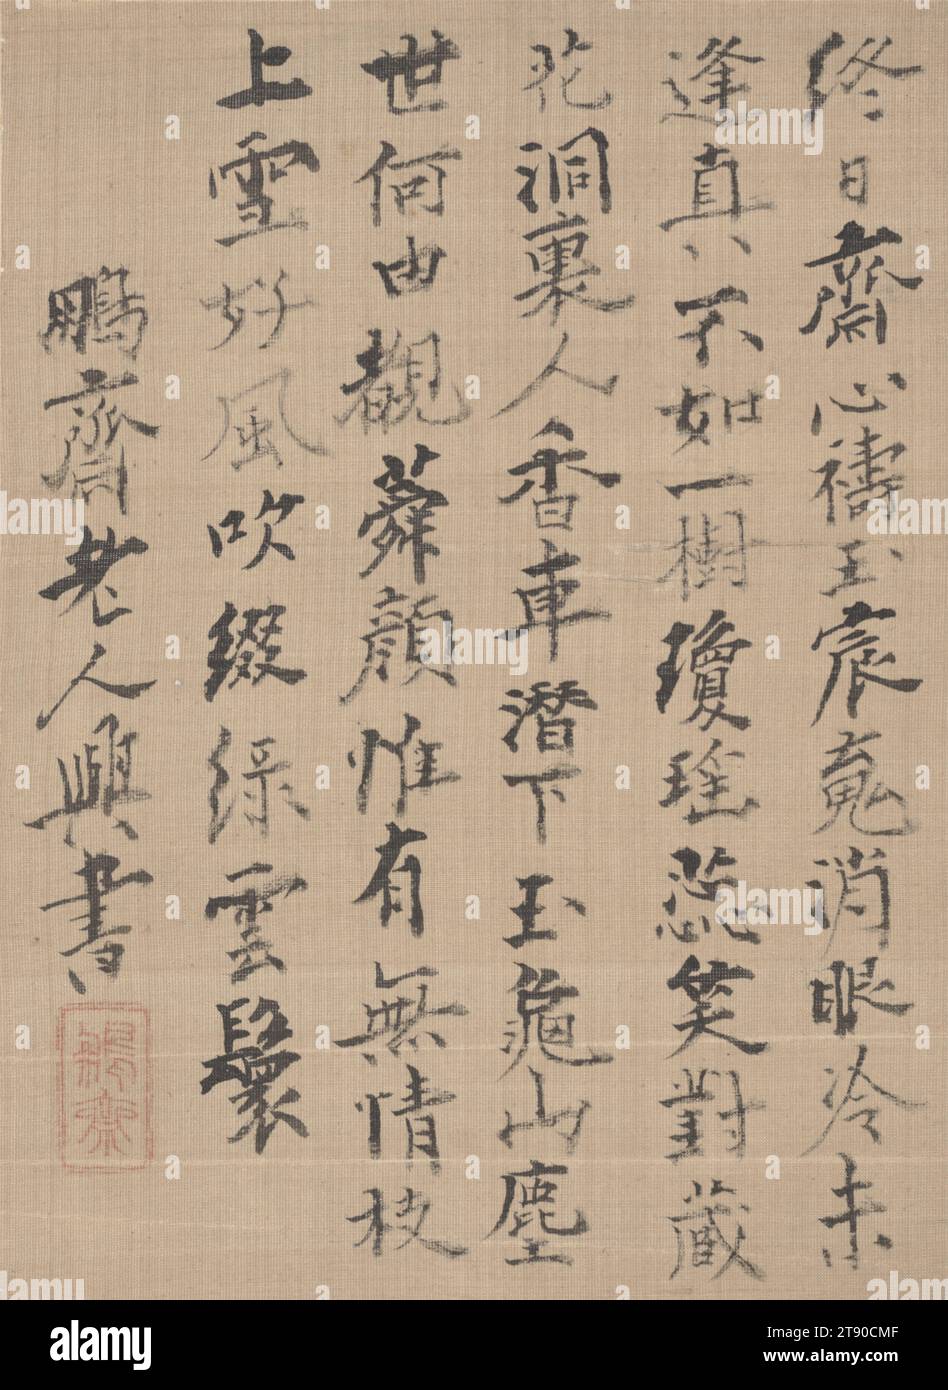 終日齋心禱玉宸䰟消眼冷未
逢真不如一樹瓊瑤蕊笑對藏
花洞裏人香車潛下玉龜山塵
世何由觀蕣顏惟有無情枝
上雪好風吹綴綠雲鬟
鵬齋老人興書
鵬齋
alamy
Image ID: 2T90CMF
www.alamy.com